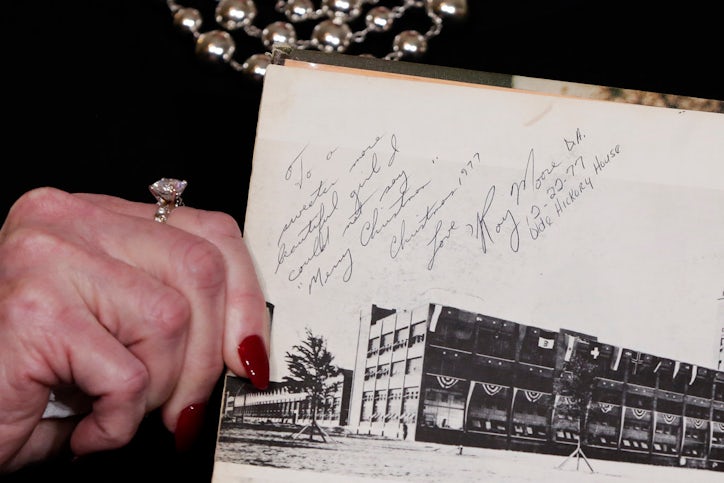 To a more
sweeter
beautiful girl I
could not say
"Merry Christmas"
Christmas 1977
Love,
Roy Moore D.A.
12-22-77
Olde Hickory House